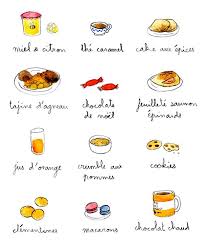 miel & citron
thé caramel
cake aux épices
tajine d'agneau
chocolats
de noël
feuilleté saumon
épinards
jus d'orange
crumble aux
pommes
cookies
clémentines
macarons
chocolat chaud